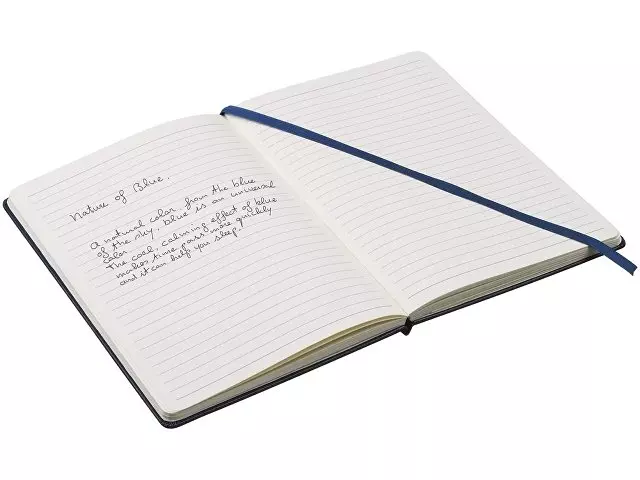 Nature of Blue.
A natural color, from the blue
of the sky, blue is an universal
color.
The cool, calming effect of blue
makes time pass more quickly
and it can help you sleep!